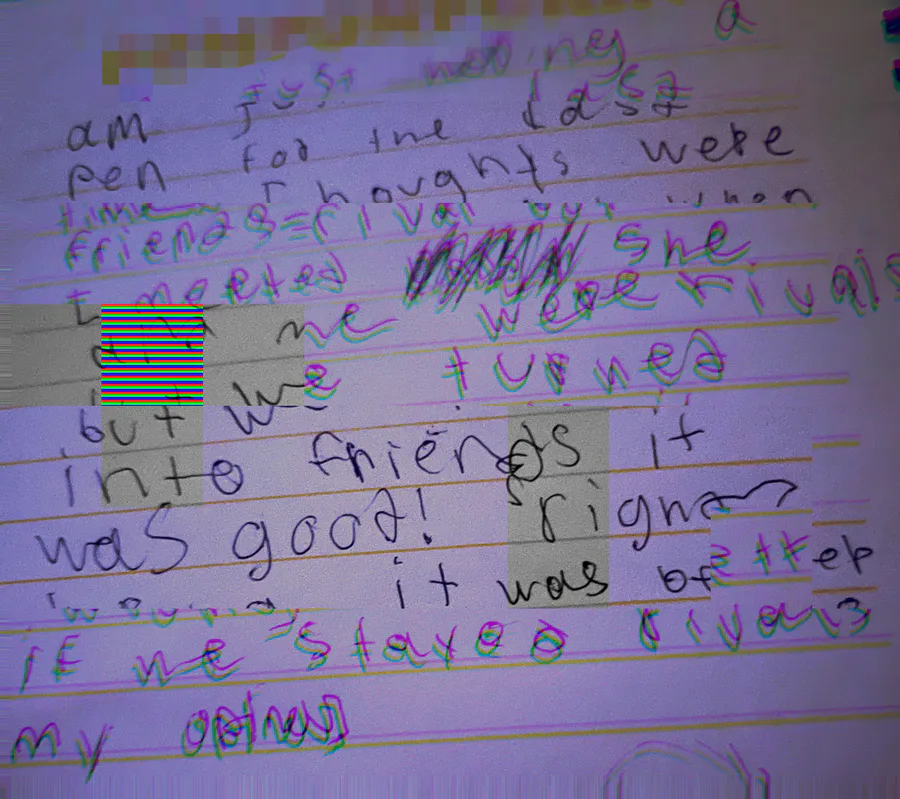 am just a
pen for the last
time thoughts were
friends=rival
I meeted she
and me were rivals
but we turned
into friends it
was good!
it was better
if we stayed rivals
my